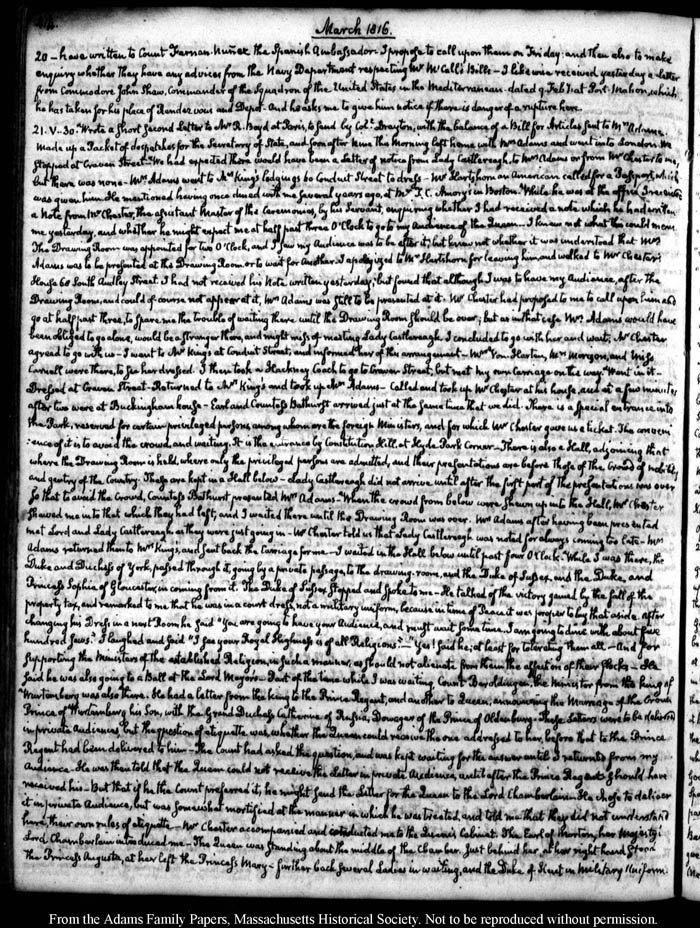 March 1816.
20 – have written to Count Fernan-Nuñez the Spanish Ambassador. I propose to call upon them on Friday; and then also to make
enquiry whether they have any advices from the Navy Department respecting Mr McCall's Bills – I likewise received yesterday a letter
from Commodore John Shaw, Commander of the Squadron of the United States in the Mediterranean – dated 9 Feby at Port-Mahon, which
he has taken for his place of Rendezvous and Depot – And he asks me to give him notice if there is danger of a rupture here.
21. V-30. Wrote a short Second Letter to Mr R. Boyd at Paris, to send by Coll. Drayton, with the balance of a Bill for Articles sent to Mrs Adams.
Made up a Packet of despatches for the Secretary of State, and soon after nine this Morning left home with Mrs Adams and went into London. We
stopped at Craven Street. We had expected there would have been a Letter of notice from Lady Castlereagh, to Mrs Adams or from Mr Chester to me,
but there was none – Mrs Adams went to Mrs King's lodgings 60 Conduit Street to dress – Mr Hartshorn an American called for a Passport, which
was given him. He mentioned having once dined with me several years ago, at Mr T. C. Amory's in Boston. While he was at the office I received
a Note from Mr Chester, the assistant Master of the Ceremonies, by his Servant, enquiring whether I had received a note which he had written
me yesterday, and whether he might expect me at half past three O'Clock to go to my Audience of the Queen. I knew not what this could mean
The Drawing Room was appointed for two O'Clock, and I saw my Audience was to be after it; but knew not whether it was understood that Mrs
Adams was to be presented at the Drawing Room or to wait for Another. I apologized to Mr Hartshorn for leaving him, and walked to Mr Chester's
House 60 South Audley Street. I had not received his Note written yesterday; but found that although I was to have my Audience, after the
Drawing Room, and could of course not appear at it, Mrs Adams was still to be presented at it. Mr Chester had proposed to me to call upon him and
go at half past three, to spare me the trouble of waiting there until the Drawing Room should be over; but as in that case Mrs Adams would have
been obliged to go alone, would be a stranger there, and might miss of meeting Lady Castlereagh. I concluded to go with her and wait. Mr Chester
agreed to go with us – I went to Mrs King's at Conduit Street, and informed her of this arrangement – Mrs Von Harten, Mrs Morgan, and Miss
Carnall were there, to see her dressed. I then took a Hackney Coach to go to Craven Street, but met my own carriage on the way. Went in it –
Dressed at Craven Street – Returned to Mrs King's and took up Mrs Adams – Called and took up Mr Chester at his house, and at a few minutes
after two were at Buckingham house – Earl and Countess Bathurst arrived just at the same time that we did. There is a special entrance into
the Park, reserved for certain privileged persons, among whom are the foreign Ministers, and for which Mr Chester gave us a ticket. The conveni
:ence of it is to avoid the crowd, and waiting. It is the entrance by Constitution Hill, at Hyde Park Corner – There is also a Hall, adjoining that
where the Drawing Room is held, where only the privileged persons are admitted, and their presentations are before those of the Crowd of nobility
and gentry of the Country. These are kept in a Hall below – Lady Castlereagh did not arrive until after the first part of the presentations was over
So that to avoid the Crowd, Countess Bathurst presented Mrs Adams – When the crowd from below were shewn up into the Hall, Mr Chester
shewed me into that which they had left, and I waited there until the Drawing Room was over. Mrs Adams after having been presented
met Lord and Lady Castlereagh as they were just going in – Mr Chester told us that Lady Castlereagh was noted for always coming too late – Mrs
Adams returned then to Mrs Kings, and sent back the Carriage for me – I waited in the Hall below until past four O'Clock. While I was there, the
Duke and Duchess of York, passed through it, going by a private passage, to the drawing-room, and the Duke of Sussex, and the Duke, and
Princess Sophia of Gloucester, in coming from it. The Duke of Sussex stopped and spoke to me – He talked of the victory gained by the fall of the
property tax, and remarked to me that he was in a court dress, not a military uniform, because in time of Peace it was proper to lay that aside. After
changing his Dress in a next Room he said "You are going to have your Audience, and must wait some time. I am going to dine with about five
hundred Jews." I laughed and said "I see your Royal Highness is of all Religions." – "Yes! said he; at least for tolerating them all – And for
supporting the Ministers of the established Religion, in such a manner, as should not alienate from them the affection of their flocks – He
said he was also going to a Ball at the Lord Mayor's – Part of the time while I was waiting Count Beroldingen, the Minister from the king of
Wurtemberg was also there. He had a letter from the king to the Prince Regent, and another to Queen, announcing the Marriage of the Crown
Prince of Wurtemberg his Son, with the Grand Duchess Catherine of Russia, Dowager of the Prince of Oldenburg – These Letters were to be delivered
in private Audiences, but the question of etiquette was, whether the Queen could receive the one addressed to her, before that to the Prince
Regent had been delivered to him – The Count had asked the question, and was kept waiting for the answer until I returned from my
Audience – He was then told that the Queen could not receive the Letter in private Audience, until after the Prince Regent should have
received his – But that if he the Count preferred it, he might send the Letter for the Queen to the Lord Chamberlain – He chose to deliver
it in private Audience, but was somewhat mortified at the manner in which he was treated, and told me that they did not understand
here, their own rules of etiquette – Mr Chester accompanied and conducted me to the Queen's Cabinet. The Earl of Morton, her Majesty's
Lord Chamberlain introduced me – The Queen was standing about the middle of the Chamber. Just behind her, at her right hand stood
the Princess Augusta, at her left the Princess Mary – further back several Ladies in waiting, and the Duke of Kent in military Uniform
From the Adams Family Papers, Massachusetts Historical Society. Not to be reproduced without permission.